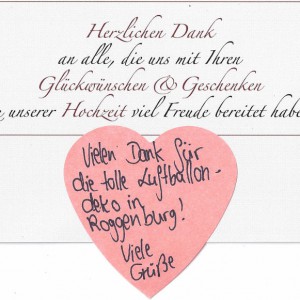 Herzlichen Dank
an alle, die uns mit Ihren
Glückwünschen & Geschenken
unserer Hochzeit viel Freude bereitet habe
Vielen Dank für
die tolle Luftballon-
deko in
Roggenburg!
Viele
Grüße